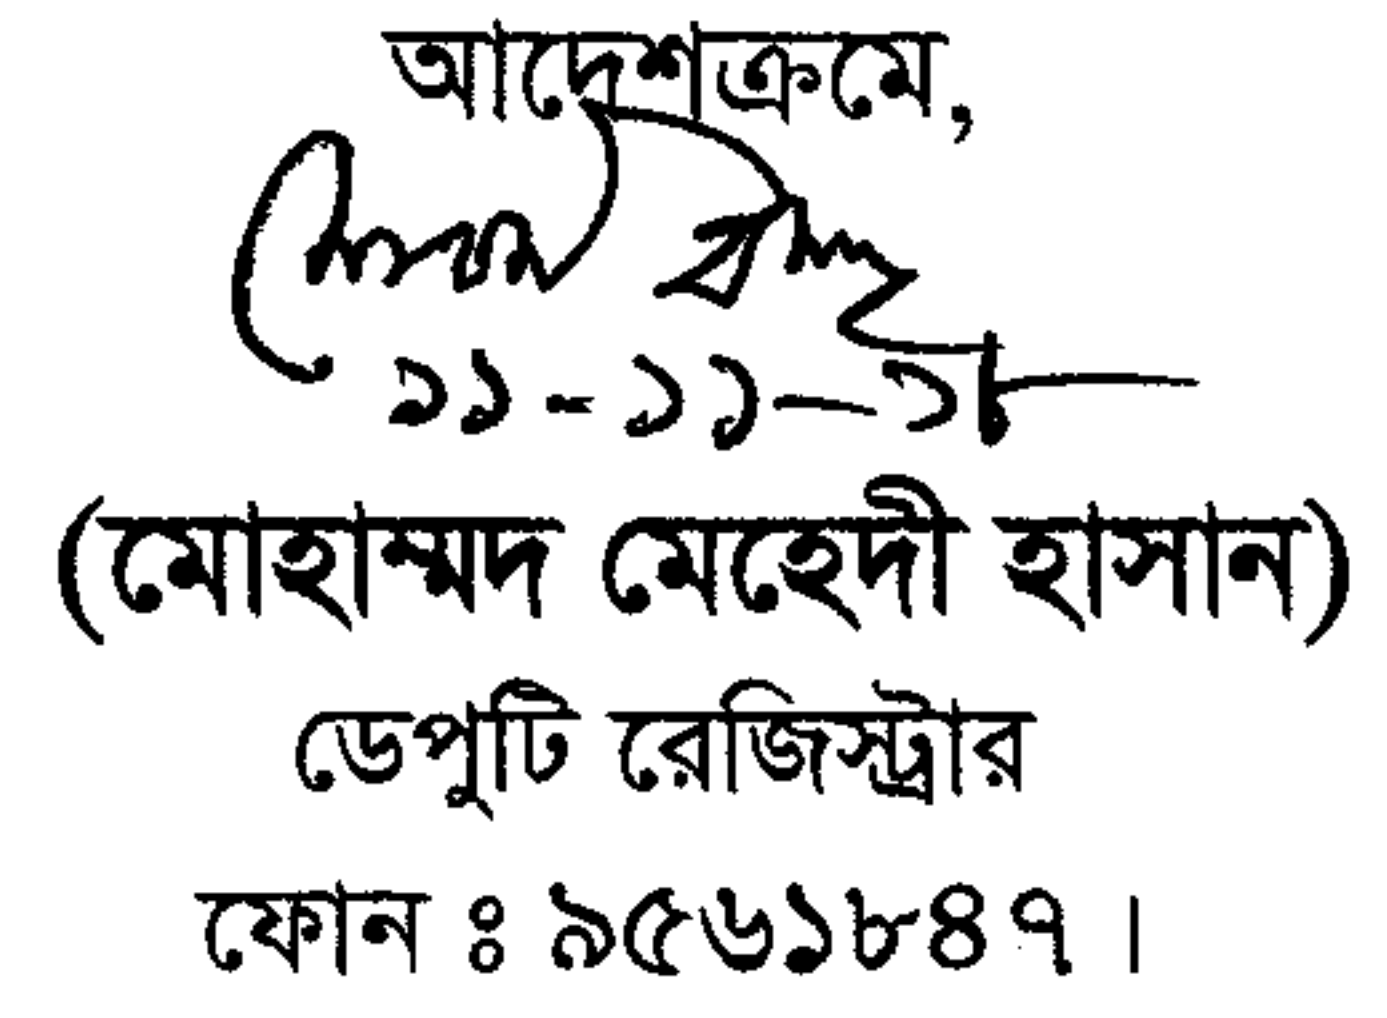 আদেশক্রমে,
১১-১১-১৮
(মোহাম্মদ মেহেদী হাসান)
ডেপুটি রেজিস্ট্রার
ফোন : ৯৫৬১৮৪৭।